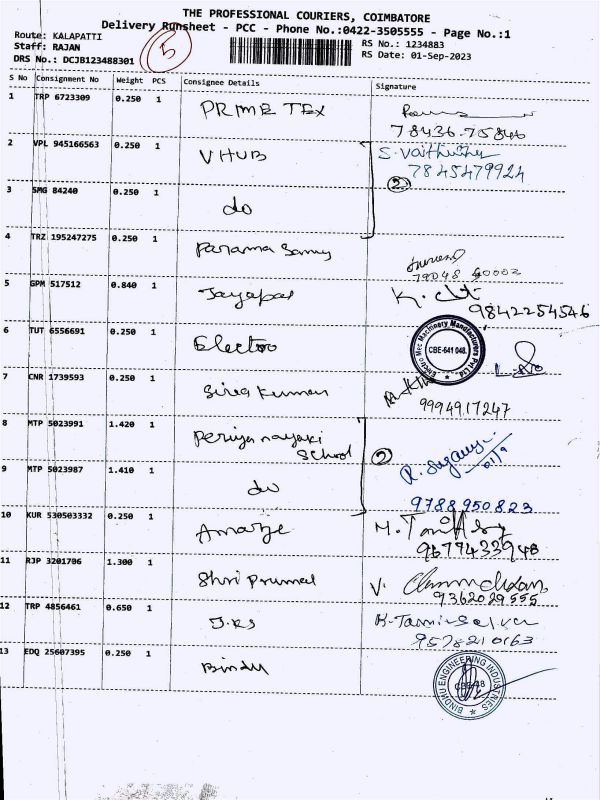 THE PROFESSIONAL COURIERS, COIMBATORE
Delivery Runsheet - PCC - Phone No.:0422-3505555 - Page No.:1
Route: KALAPATTI
Staff: RAJAN
DRS No.: DCJB123488301
5
RS No.: 1234883
RS Date: 01-Sep-2023
S No Consignment No Weight PCS Consignee Details Signature
1 TRP 6723309 0.250 1 PRIME TEX
78436.75846
2 VPL 945166563 0.250 1 VHUB S. Vaithi
7845479924
2
3 SMG 84240 0.250 1 do
4 TRZ 195247275 0.250 1 Parama Samy
5 GPM 517512 0.840 1 Jayapal K.
9842254546
6 TUT 6556691 0.250 1 Electro
Electro Mec Machinery Manufacturers Pvt Ltd.
CBE-641 048.
7 CNR 1739593 0.250 1 Siva Kumar
9994917247
8 MTP 5023991 1.420 1 Periya nayaki School
2
01/9
9 MTP 5023987 1.410 1 do
9788950823
10 KUR 530503332 0.250 1 M.
9677433948
11 RJP 3201706 1.300 1 Shri Prumal V.
9362029555
12 TRP 4856461 0.650 1 J.R.S K. Tamil Selvan
9578210163
13 EDQ 25607395 0.250 1 Bindu
BINDHU ENGINEERING INDUSTRIES